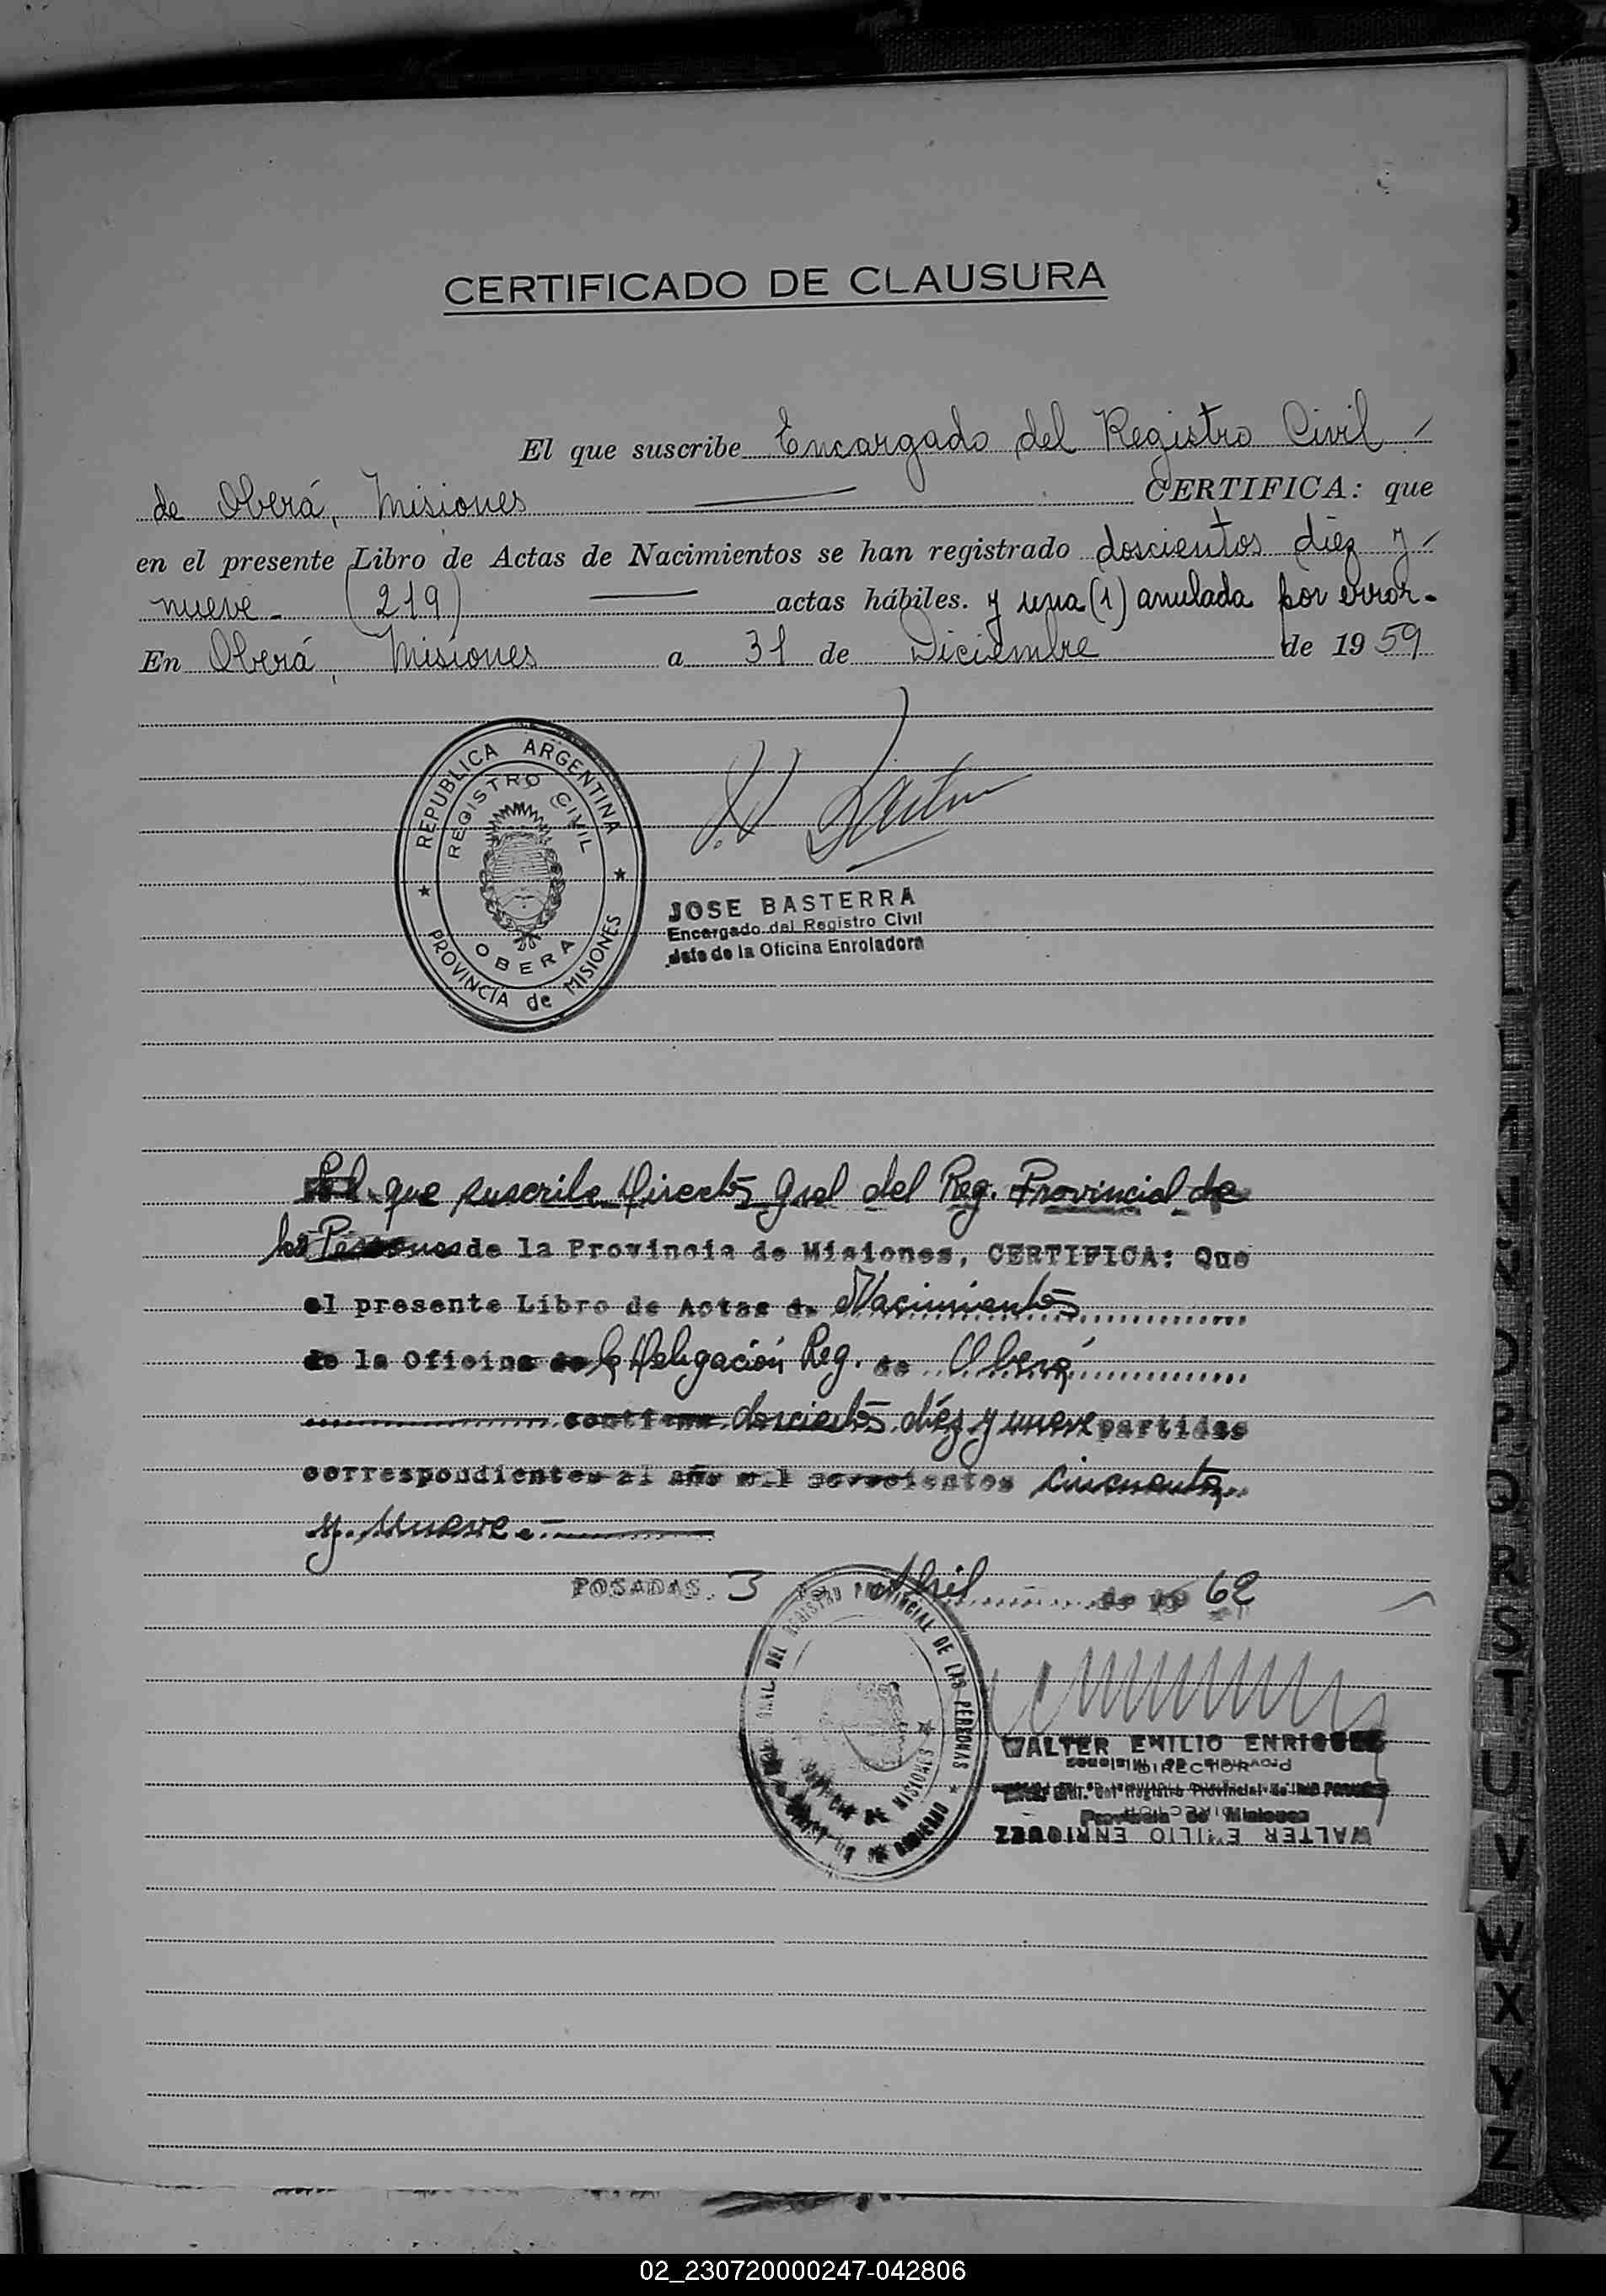 CERTIFICADO DE CLAUSURA
El que suscribe Encargado del Registro Civil
de Oberá, Misiones CERTIFICA: que
en el presente Libro de Actas de Nacimientos se han registrado doscientos diez y
nueve - (219) actas hábiles. y una (1) anulada por error.
En Oberá, Misiones a 31 de Diciembre de 1959
REPUBLICA ARGENTINA
REGISTRO CIVIL
OBERA
PROVINCIA de MISIONES
JOSE BASTERRA
Encargado del Registro Civil
Jefe de la Oficina Enroladora
El que suscribe Director Gral del Reg. Provincial de
las Personas de la Provincia de Misiones, CERTIFICA: Que
el presente Libro de Actas de Nacimientos
de la Oficina de la Delegación Reg. de Oberá
contiene doscientos diez y nueve partidas
correspondientes al año mil novecientos cincuenta
y nueve.-
POSADAS. 3 Abril de 19 62
GRAL. DEL REGISTRO PROVINCIAL DE LAS PERSONAS
DE MISIONES
GOBIERNO
WALTER EMILIO ENRIQUEZ
DIRECTOR
Gral. del Registro Provincial de las Personas
Provincia de Misiones
WALTER EMILIO ENRIQUEZ
B
I
J
K
L
M
N
O
P
Q
R
S
T
U
V
W
X
Y
Z
02_230720000247-042806